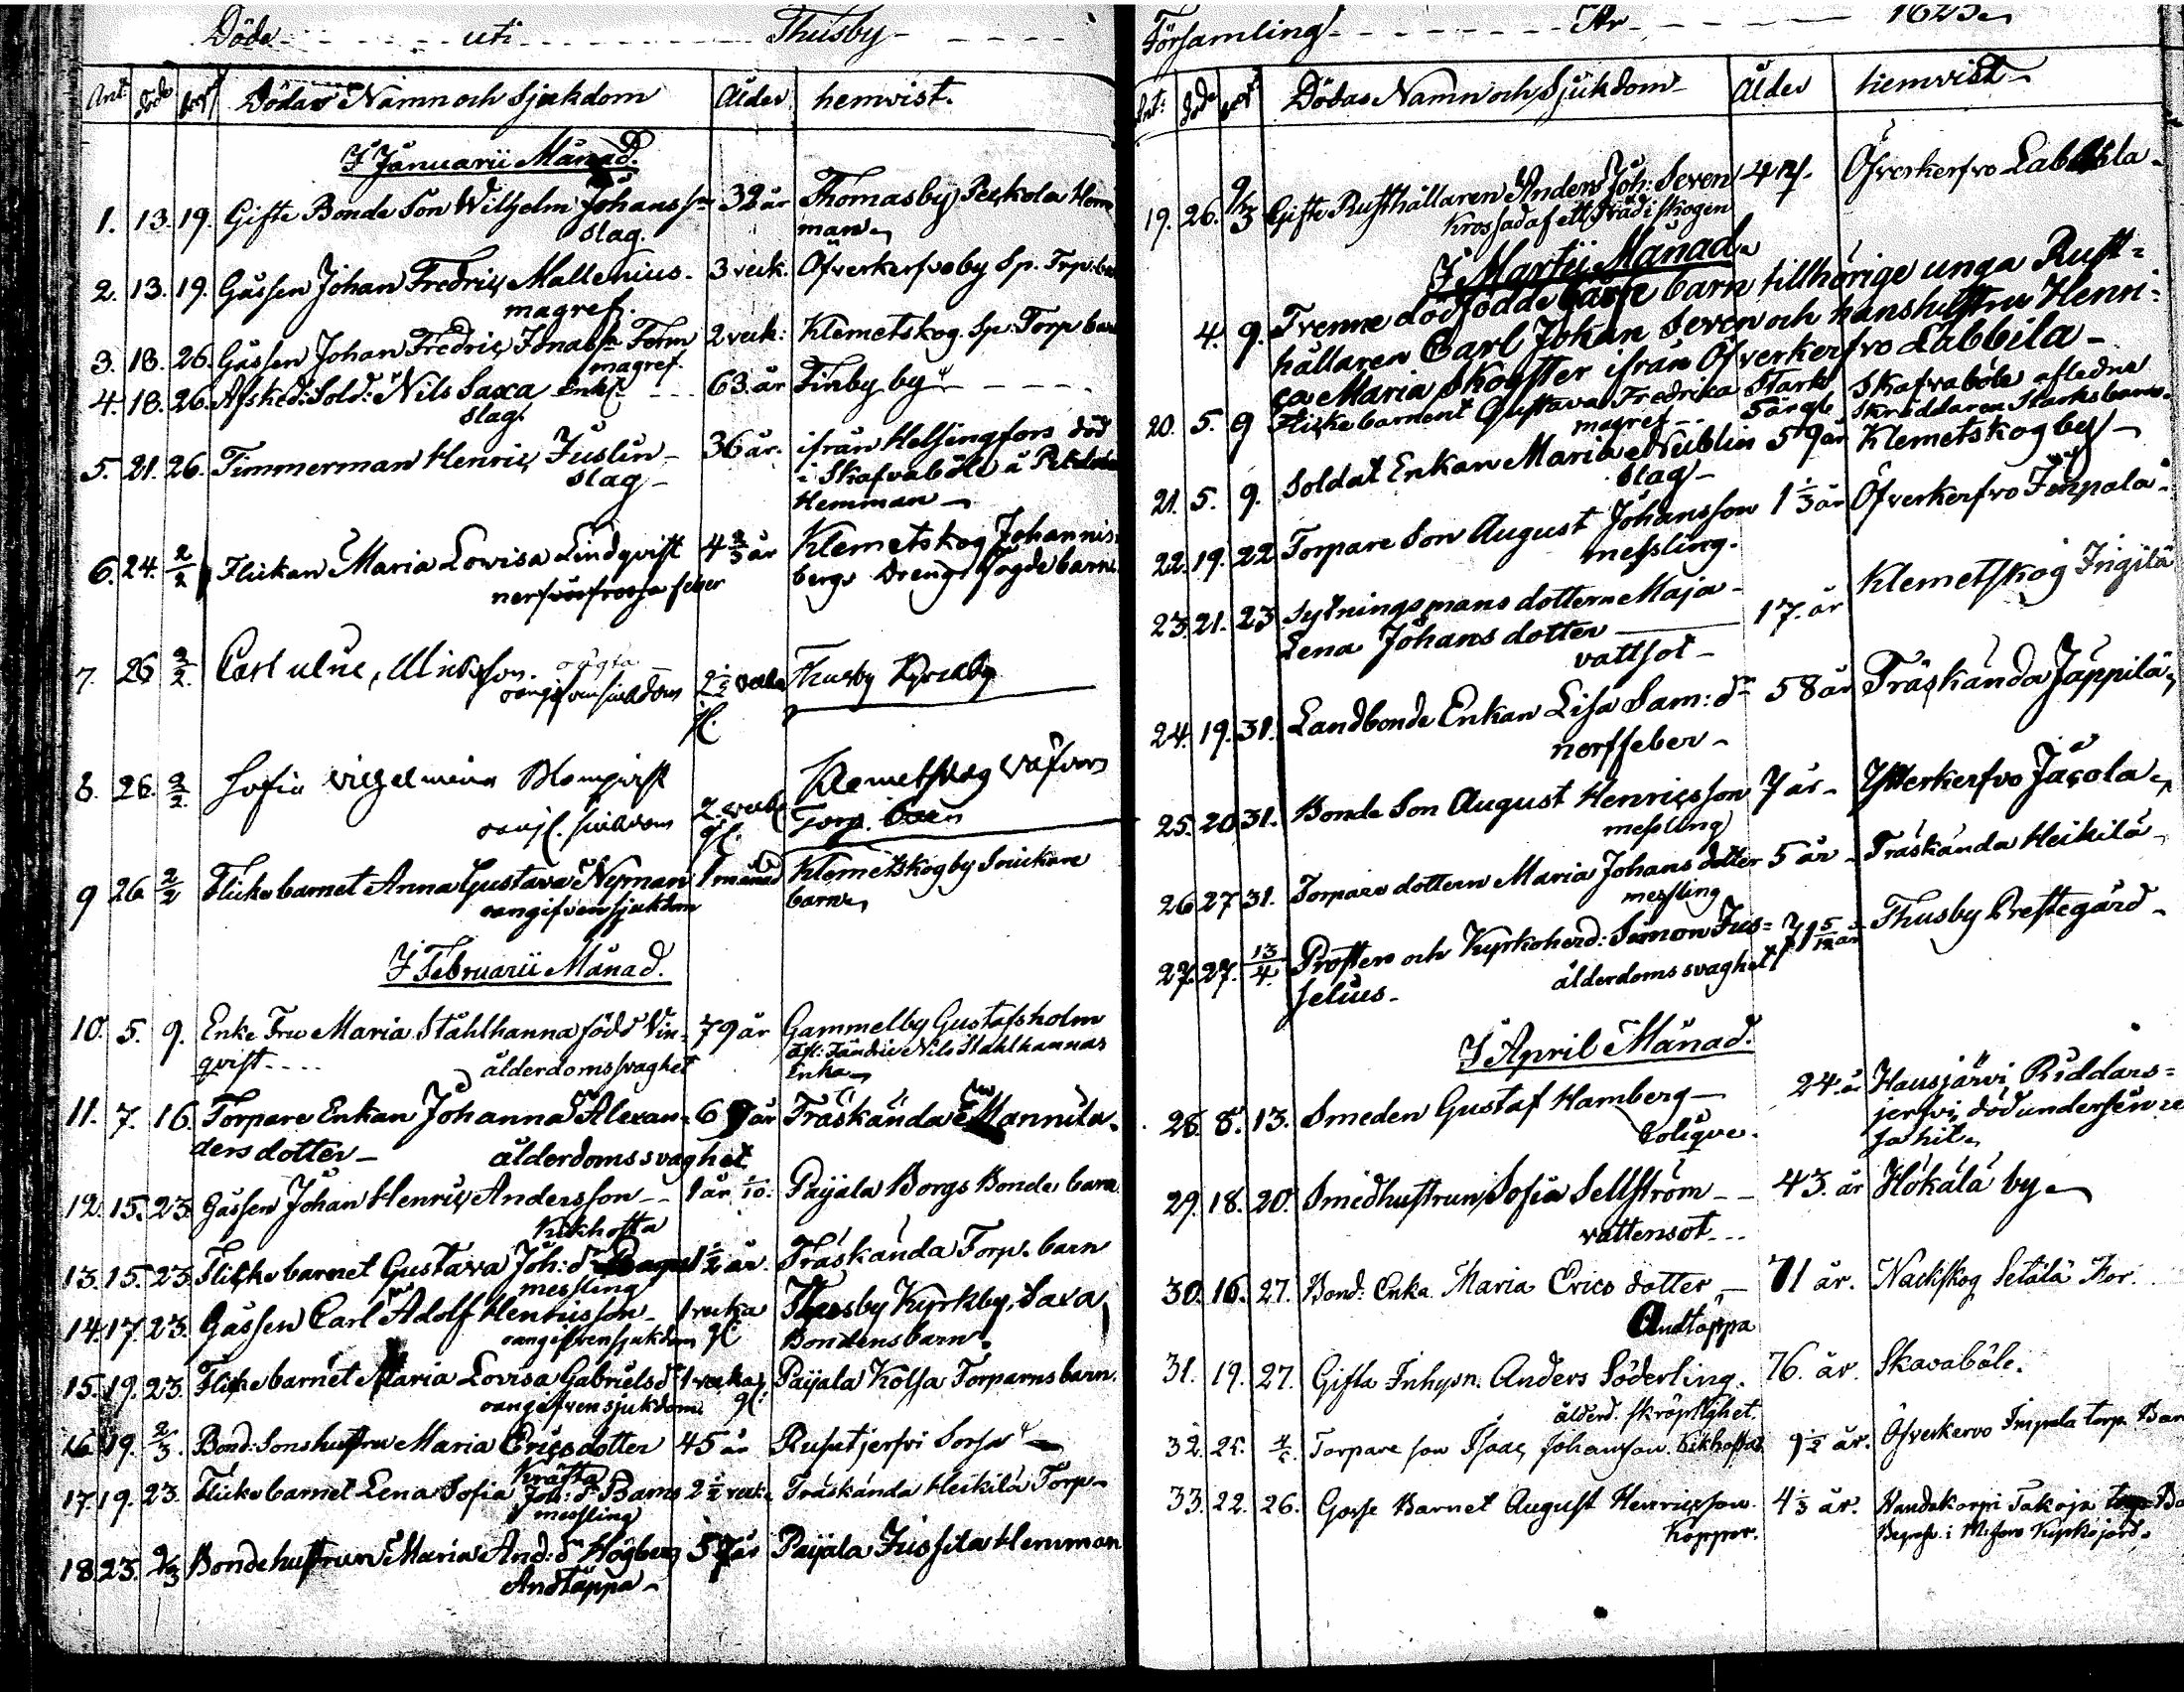 Döde uti Thusby
Ant: död begr Dödas Namn och Sjukdom Ålder hemvist.
I Januarii Månad.
1. 13. 19. Gifte Bonde Son Wilhelm Johanss:n 32 år Thomasby Peckola Hem
slag. man
2. 13. 19. Gåssen Johan Fredric Mallenius 3 veck. Öfverkerfvo by Sp. Trp: ba
magref.
3. 18. 26. Gåssen Johan Fredric Form 2 veck: Klemetskog. Sp: Torp bar
magref.
4. 18. 26. Afsked: Sold: Nils Saxa enkl. 63. år Finby by
slag.
5. 21. 26. Timmerman Henric Juslin 36 år. ifrån Helsingfors död
slag i Skafvaböle å
Hemman
6. 24. 2/2 Flickan Maria Lovisa Lindqvist 4 2/3 år Klemetskog Johannis
feber bergs Drengs barn
7. 26 2/2. Carl
oangifven sjukdom 2 1/2 vecka Thusby Kyrkby
gl.
8. 26. 2/2. Sofia Vilhelmina Blomqvist Klemetskog
oangf. sjukdom 2 veck Torp. barn
gl.
9 26 2/2 Flickebarnet Anna Gustava Nyman 1 månad Klemetskog by Snickare
oangifven sjukdom barn
I Februarii Månad.
10. 5. 9. Enke Fru Maria Stahlhanna född Vin- 79 år Gammelby Gustafsholm
qvist ålderdomssvaghet Afl: Fändric Nils Stahlhannas
Enka
11. 7. 16. Torpare Enkan Johanna Alexan- 67 år Träskända Mannila.
ders dotter ålderdomssvaghet
12. 15. 23. Gåssen Johan Henric Andersson 1 år 1/10. Paijala Borgs Bonde barn
Kikhosta
13. 15. 23. Flickebarnet Gustava Joh: dr 1 1/2 år. Träskända Torp. barn
messling
14. 17. 23. Gåssen Carl Adolf Henricsson 1 vecka Thusby Kyrkby, Saxa
oangifven sjukdom gl. Bondens barn.
15. 19. 23. Flickebarnet Maria Lovisa Gabriels dr 1 vecka Paijala Kolsa Torparns barn.
oangifven sjukdom. gl.
16. 19. 2/3. Bond: Sons hustru Maria Ericsdotter 45 år Rusutjerfvi Sorsa
Kräfta
17. 19. 23. Flickebarnet Lena Sofia Joh: dr Barns 2 1/2 veck. Träskända Heikilä Torp
messling
18. 23. 2/3 Bondehustrun Maria And: dr Högberg 57 år Paijala Jussila Hemman
Andtäppa
Församling År
Ant: död begr Dödas Namn och Sjukdom Ålder hemvist
19. 26. 9/3 Gifte Rusthållaren Anders Joh: Seven 47. Öfverkerfvo Labbila
Krossad af ett träd i skogen
I Martii Månad
4. 9. Tvenne dödfödde barn tillhörige unga Rust-
hållaren Carl Johan Seven och hans hustru Henri-
ca Maria Skogster ifrån Öfverkerfvo Labbila
20. 5. 9 Flickebarnent Gustava Fredrika Stark 5 år gl. Skafvaböle afledne
magref Skräddaren Starks barn
21. 5. 9. Soldat Enkan Maria Nublin 59 år Klemetskog by
slag
22. 19. 22 Torpare Son August Johansson 1 1/3 år Öfverkerfvo Jinpala
messling.
23. 21. 23 Sytningsmans dottern Maja
Lena Johans dotter 17. år Klemetskog Ingilä
vattsot
24. 19. 31. Landbonde Enkan Lisa Sam: dr 58 år Träskända Jäppilä
nerffeber
25. 20. 31. Bonde Son August Henricsson 7 år Ytterkerfvo Jäcola
messling
26 27 31. Torpare dottern Maria Johans dotter 5 år Träskända Heikilä
messling
27. 27. 13/4. Prosten och Kyrkoherd: Simon Jus- 71 5/12 år Thusby Prestegård
selius ålderdomssvaghet
I April Månad.
28. 8. 13. Smeden Gustaf Hamberg 24. år Hausjärvi, Riddars-
Colique. jerfvi död under sin re
sa hit
29. 18. 20. Smidhustrun Sofia Sellström 43. år Hökälä by
vattensot
30. 16. 27. Bond: Enka Maria Erics dotter 71 år. Nackskog Setälä
Andtäppa
31. 19. 27. Gifta Inhysn. Anders Söderling. 76. år. Skavaböle.
ålderd. skröplighet.
32. Torpare son Isaac Johansson. Kikhosta 9 1/2 år. Öfverkervo Jinpala torp. Bar
33. 22. 26. Gosse Barnet August Henricsson. 4 1/3 år. Handakorpi Takoja Ba
Koppor. Kyrkojord.